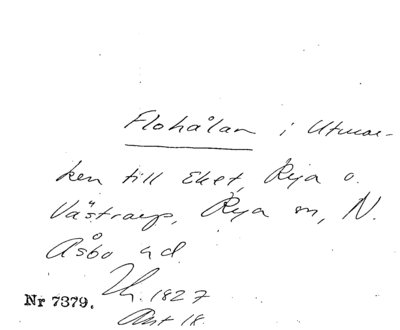 Flohålan i Utmar-
ken till Eket, Rya o.
Västraryp, Rya sn, N.
Åsbo hd.
1827
Nr 7379.
Akt 18.